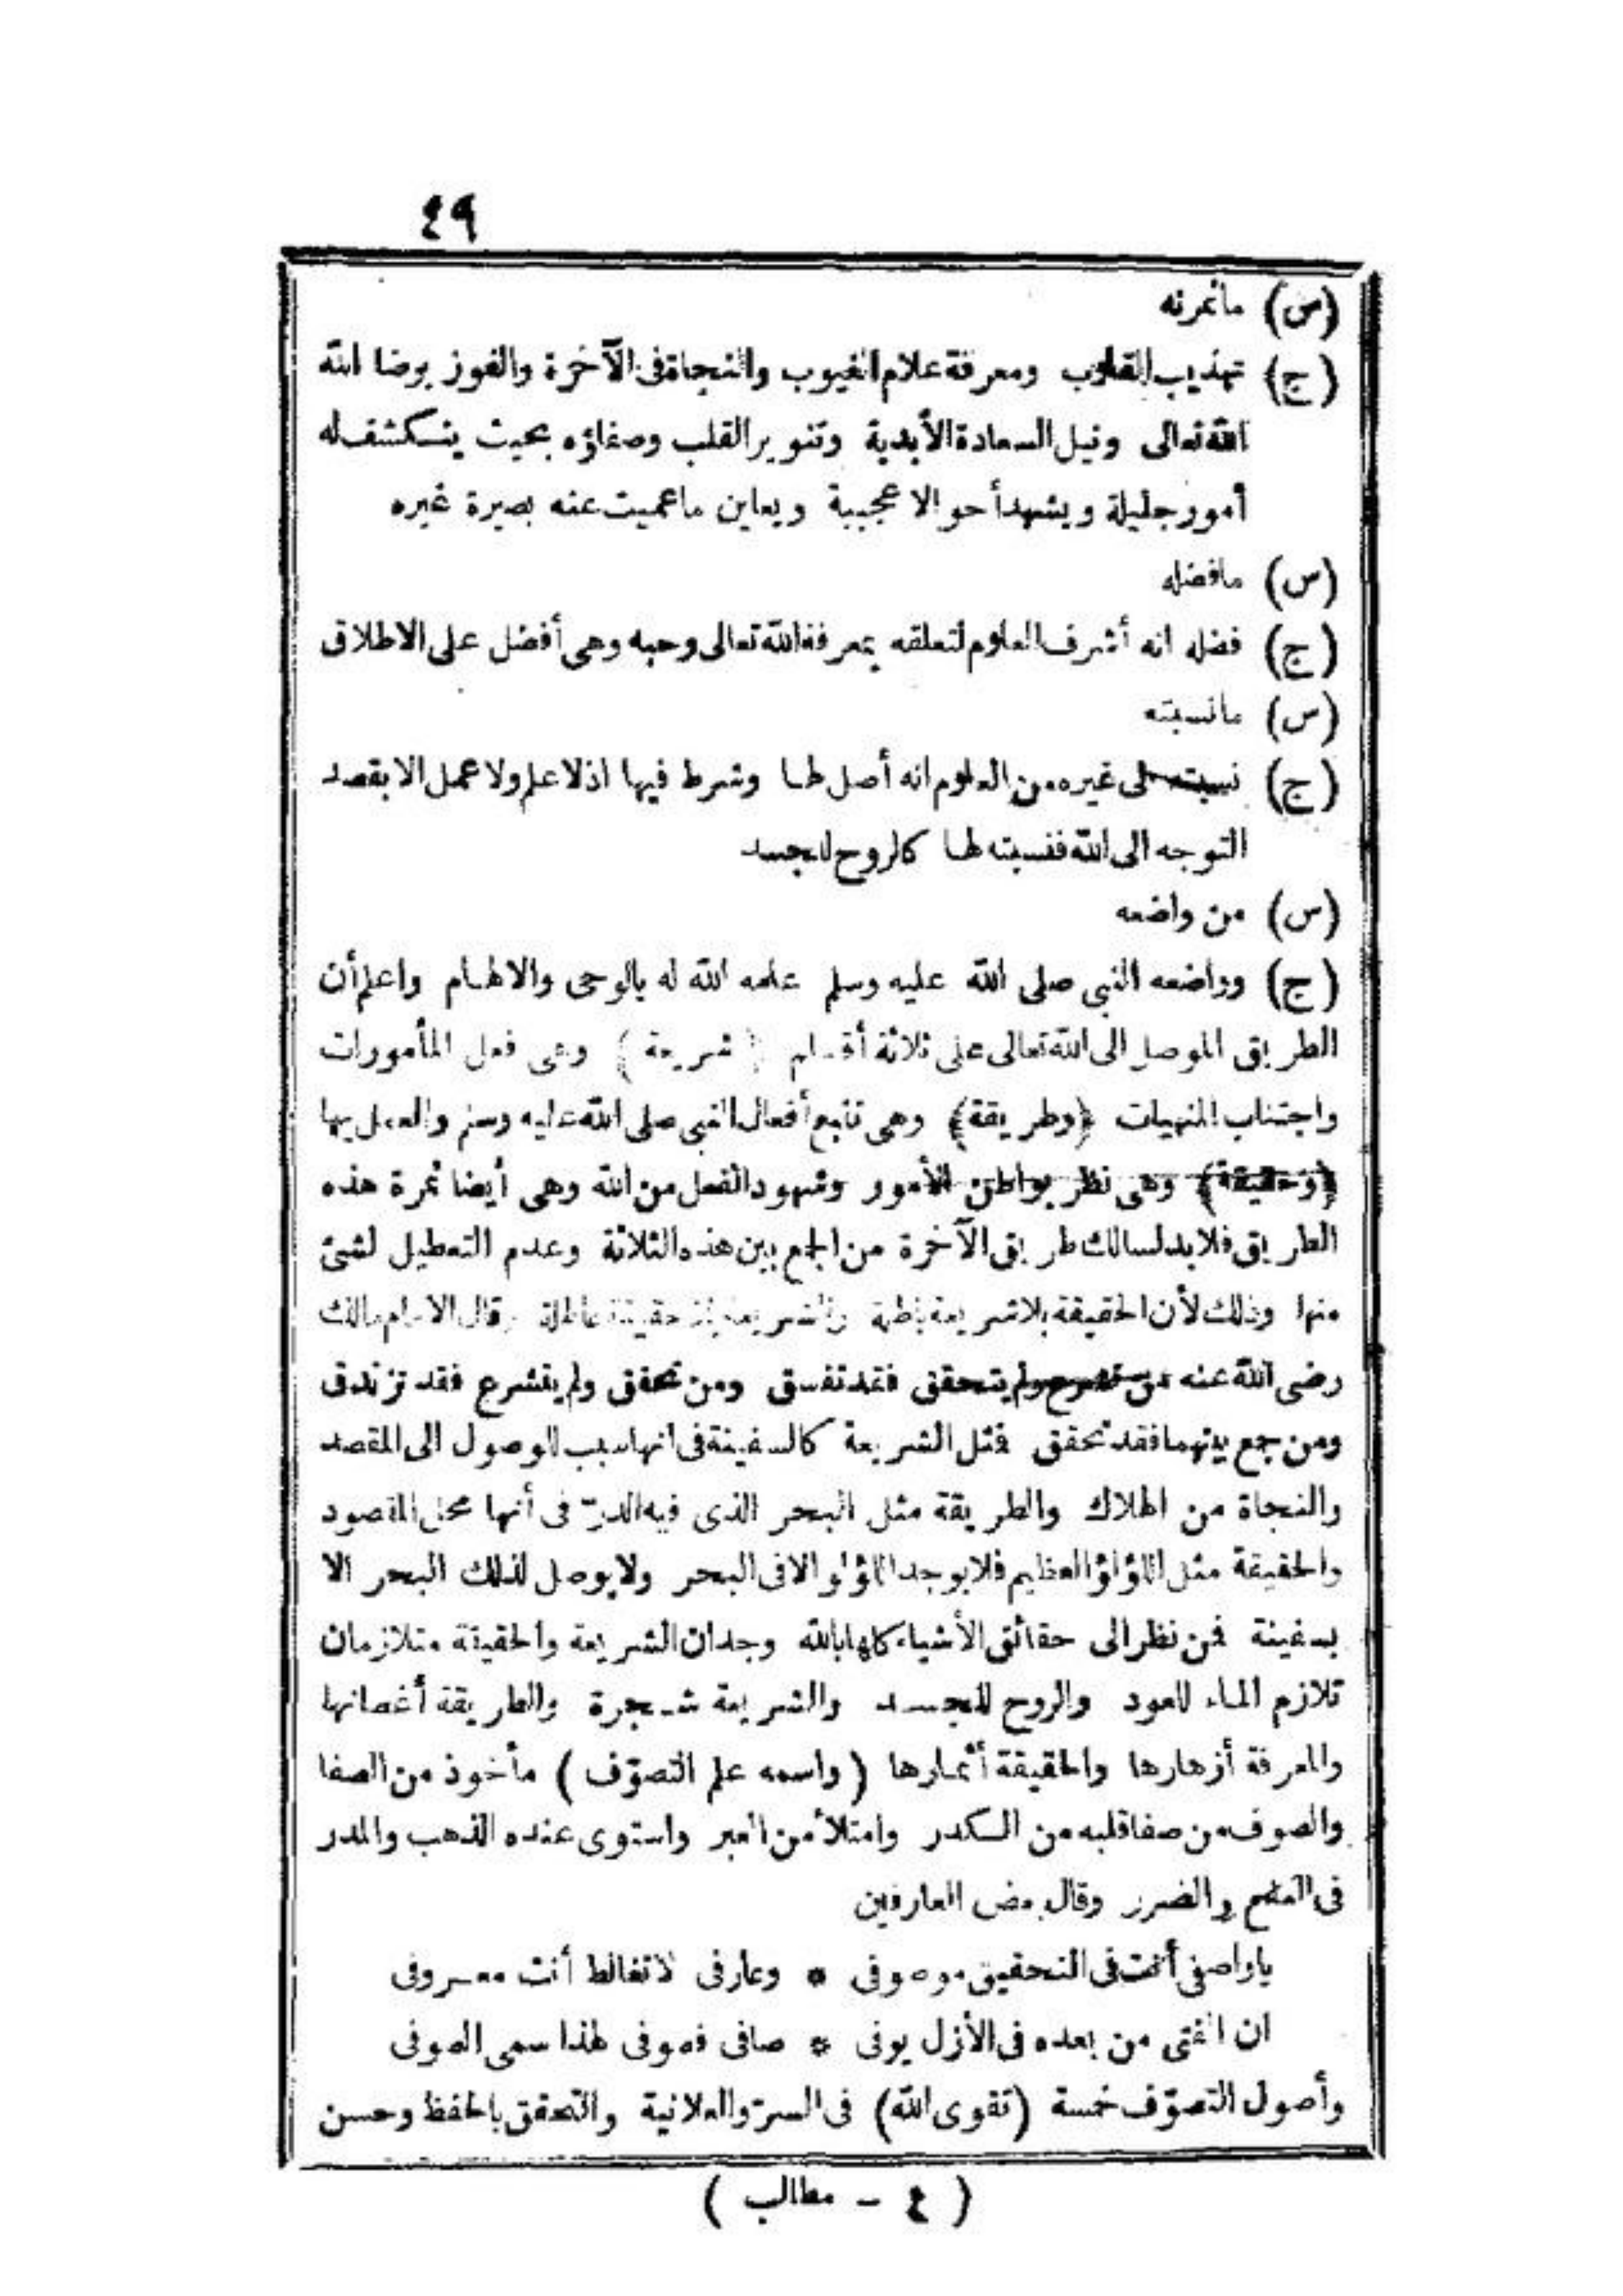 ٤٩
(س) ماثمرته
(ج) تهذيب القلوب ومعرفة علام الغيوب والنجاة فى الآخرة والفوز برضا الله
الله تعالى ونيل السعادة الأبدية وتنوير القلب وصفاؤه بحيث ينكشف له
أمور جليلة ويشهد أحوالا عجيبة ويعاين ماعميت عنه بصيرة غيره
(س) مافضله
(ج) فضله انه أشرف العلوم لتعلقه بمعرفة الله تعالى وحبه وهى أفضل على الاطلاق
(س) مانسبته
(ج) نسبته الى غيره من العلوم انه أصل لها وشرط فيها اذ لا علم ولا عمل الا بقصد
التوجه الى الله فنسبته لها كالروح للجسد
(س) من واضعه
(ج) وواضعه النبى صلى الله عليه وسلم علمه الله له بالوحى والالهام واعلم أن
الطريق الموصل الى الله تعالى على ثلاثة أقسام (شريعة) وهى فعل المأمورات
واجتناب المنهيات (وطريقة) وهى تتبع أفعال النبى صلى الله عليه وسلم والعمل بها
(وحقيقة) وهى نظر بواطن الأمور وشهود الفعل من الله وهى أيضا ثمرة هذه
الطريق فلابد لسالك طريق الآخرة من الجمع بين هذه الثلاثة وعدم التعطيل لشئ
منها وذلك لأن الحقيقة بلا شريعة باطلة والشريعة بلا حقيقة عاطلة وقال الامام مالك
رضى الله عنه من تشرع ولم يتحقق فقد تفسق ومن تحقق ولم يتشرع فقد تزندق
ومن جمع بينهما فقد تحقق فمثل الشريعة كالسفينة فى انها سبب للوصول الى المقصد
والنجاة من الهلاك والطريقة مثل البحر الذى فيه الدرّ فى أنها محل المقصود
والحقيقة مثل اللؤلؤ العظيم فلا يوجد اللؤلؤ الا فى البحر ولا يوصل لذلك البحر الا
بسفينة فمن نظر الى حقائق الأشياء كلها بالله وجد ان الشريعة والحقيقة متلازمان
تلازم الماء للعود والروح للجسد والشريعة شجرة والطريقة أغصانها
والمعرفة أزهارها والحقيقة أثمارها (واسمه علم التصوّف) مأخوذ من الصفا
والصوف من صفا قلبه من الكدر وامتلأ من العبر واستوى عنده الذهب والمدر
فى النفع والضرر وقال بعض العارفين
ياواصفى أنت فى التحقيق موصوفى * وعارفى لا تغالط أنت معروفى
ان الفتى من بعده فى الأزل يوفى * صافى فصوفى لهذا سمى الصوفى
وأصول التصوّف خمسة (تقوى الله) فى السرّ والعلانية والتحقق بالحفظ وحسن
(٤ - مطالب)